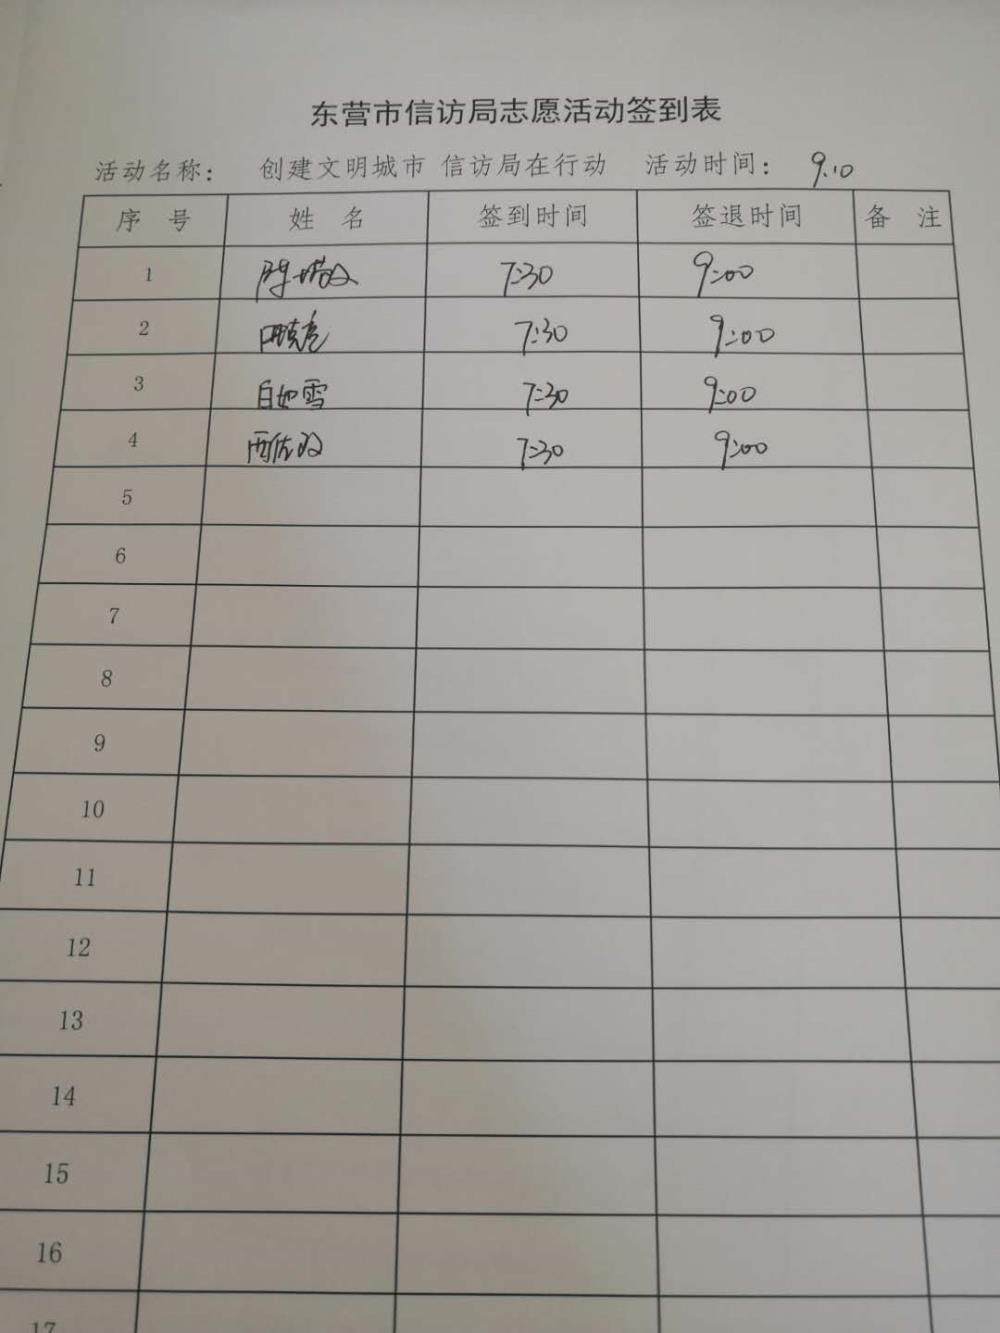 东营市信访局志愿活动签到表
活动名称： 创建文明城市 信访局在行动 活动时间： 9.10
序 号 姓 名 签到时间 签退时间 备 注
1 7:30 9:00
2 7:30 9:00
3 白如雪 7:30 9:00
4 7:30 9:00
5
6
7
8
9
10
11
12
13
14
15
16
17